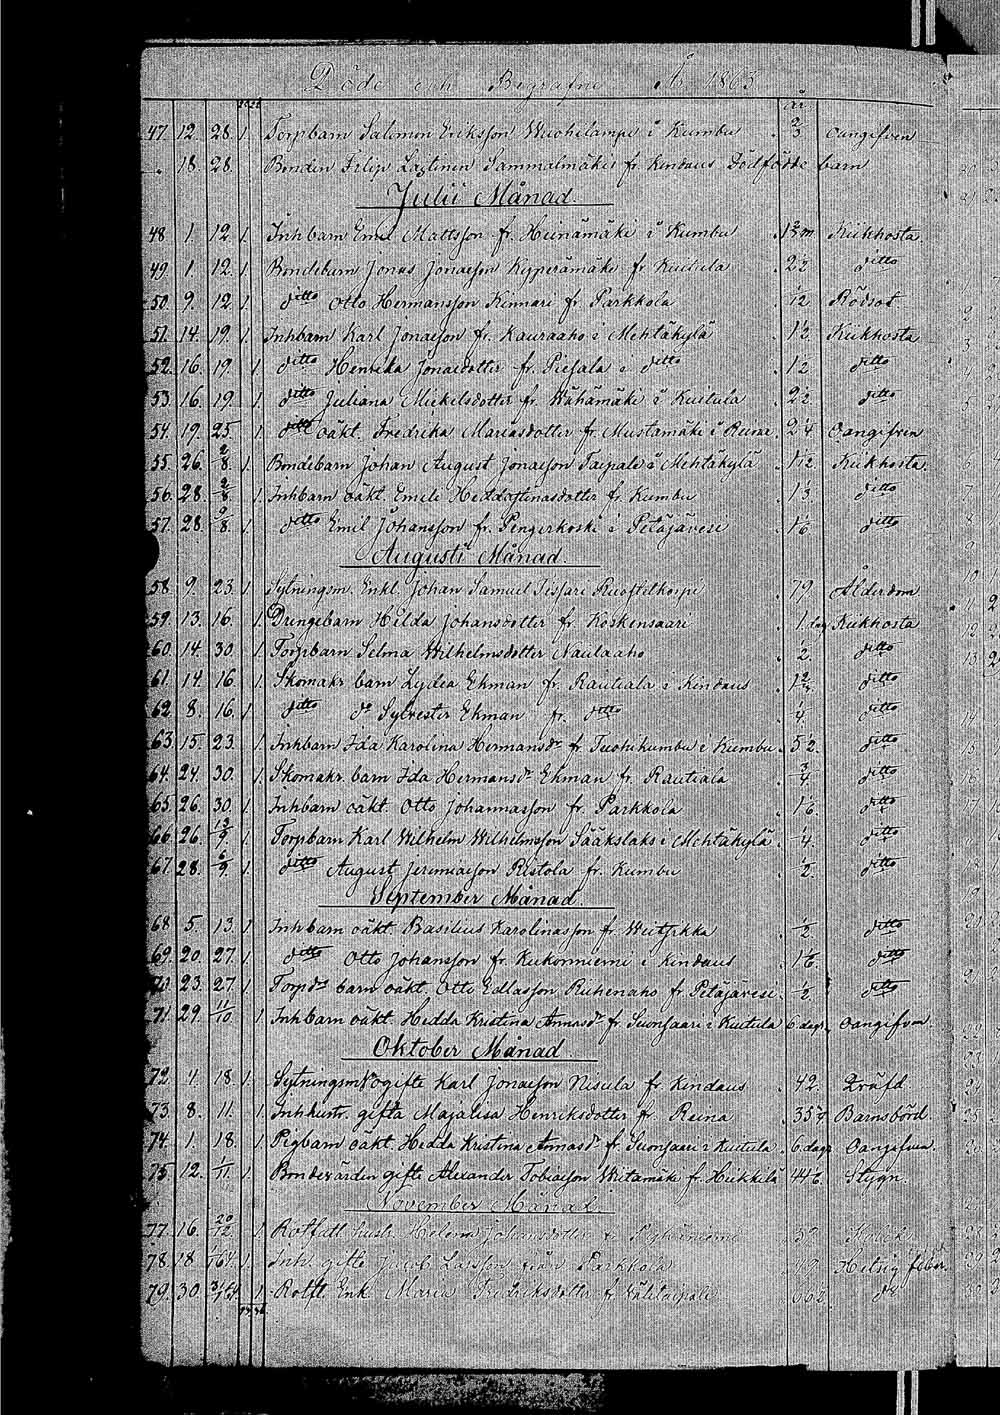 Döde och Begrafne År 1863
år
47. 12. 28. 1. Torpbarn Salomon Eriksson Wuohelampi i Kumbu 2/3 Oangifven
18. 28. Bonden Filip Laitinen Sammalmäki fr. Kindaus Dödfödde barn
Julii Månad.
48. 1. 12. 1. Inhbarn Emil Mattsson fr. Heinämäki i Kumbu Kikhosta
49. 1. 12. 1. Bondebarn Jonas Jonasson Kypperämäki fr Kuitula 2 1/2 ditto
50. 9. 12. 1. ditto Otto Hermansson Kinnari fr Parkkola 1/12 Rödsot
51. 14. 19. 1. Inhbarn Karl Jonasson fr. Kauraaho i Mehtäkylä 1 1/2 Kikhosta
52. 16. 19. 1. ditto Henrika Jonasdotter fr. Piesala i ditto 1/2 ditto
53. 16. 19. 1. ditto Juliana Mickelsdotter fr. Wähämäki i Kuitula 2 1/2 ditto
54. 19. 25. 1. ditto oäkt. Fredrika Mariasdotter fr. Mustamäki i Reina 2 1/4 Oangifven
55. 26. 2/8. 1. Bondebarn Johan August Jonasson Taipale i Mehtäkylä 1 1/12 Kikhosta
56. 28. 2/8. 1. Inhbarn oäkt. Emeli Heddastinasdotter fr. Kumbu 1 1/3 ditto
57. 28. 9/8. 1. ditto Emil Johansson fr. Pengerkoski i Petäjävesi 1 1/6 ditto
Augusti Månad.
58. 9. 23. 1. Sytningsm. Enkl. Johan Samuel 79 Ålderdom
59. 13. 16. 1. Drengebarn Hilda Johansdotter fr. Koskensaari 1 dag Kikhosta
60. 14. 30. 1. Torpbarn Selma Wilhelmsdotter Naulaaho 1/2 ditto
61. 14. 16. 1. Skomakr barn Lydia Ekman fr. Rautiala i Kindaus ditto
62. 8. 16. 1. ditto do Sylvester Ekman fr. ditto 1/4 ditto
63. 15. 23. 1. Inhbarn Ida Karolina Hermansdr fr Tuohikumbu i Kumbu 5 1/2. ditto
64. 24. 30. 1. Skomakr. barn Ida Hermansdr Ekman fr. Rautiala 3/4 ditto
65. 26. 30. 1. Inhbarn oäkt Otto Johannasson fr. Parkkola 1 1/6 ditto
66. 26. 13/9. 1. Torpbarn Karl Wilhelm Wilhelmsson Sääkslaks i Mehtäkylä 1/4. ditto
67. 28. 6/9. 1. ditto August Jeremiasson Ristola fr. Kumbu 1/2. ditto
September Månad.
68. 5. 13. 1 Inhbarn oäkt Basilius Karolinasson fr 1/2 ditto
69. 20. 27. 1. ditto Otto Johansson fr. Kukonniemi i Kindaus 1 1/6. ditto
70. 23. 27. 1. Torpdr barn oäkt. Otto Edlasson Ruhenaho fr Petäjävesi 1/2 ditto
71. 29. 11/10 1. Inhbarn oäkt. Hedda Kristina Annasdr fr Suonsaari i Kuitula 6 dagr Oangifven
Oktober Månad
72. 4. 18. 1. Sytningsm ogifte Karl Jonasson Nisula fr. Kindaus 42. Qväfd
73. 8. 11. 1. Inhhustr. gifta Majalisa Henriksdotter fr. Reina 35 Barnsbörd
74. 1. 18. 1. Pigbarn oäkt. Hedda Kristina Annasdr fr Suonsaari i Kuitula 6 dagr Oangifven.
75. 12. 1/11. 1. Bondevärden gifte Alexander Tobiasson Wiitamäki fr. Heikkilä 44 1/6. Stygn.
November Månad.
77. 16. 20/12. 1. Rotfatt. hust. Helena Johansdotter fr
78. 18. 1/64. 1. Inh. gifte Jacob Larsson från Parkkola 49 Hetsig feber
79. 30. 3/1 64. 1. Rotft. Enk. Maria Fredriksdotter fr Wälitaipale 66 1/2. do